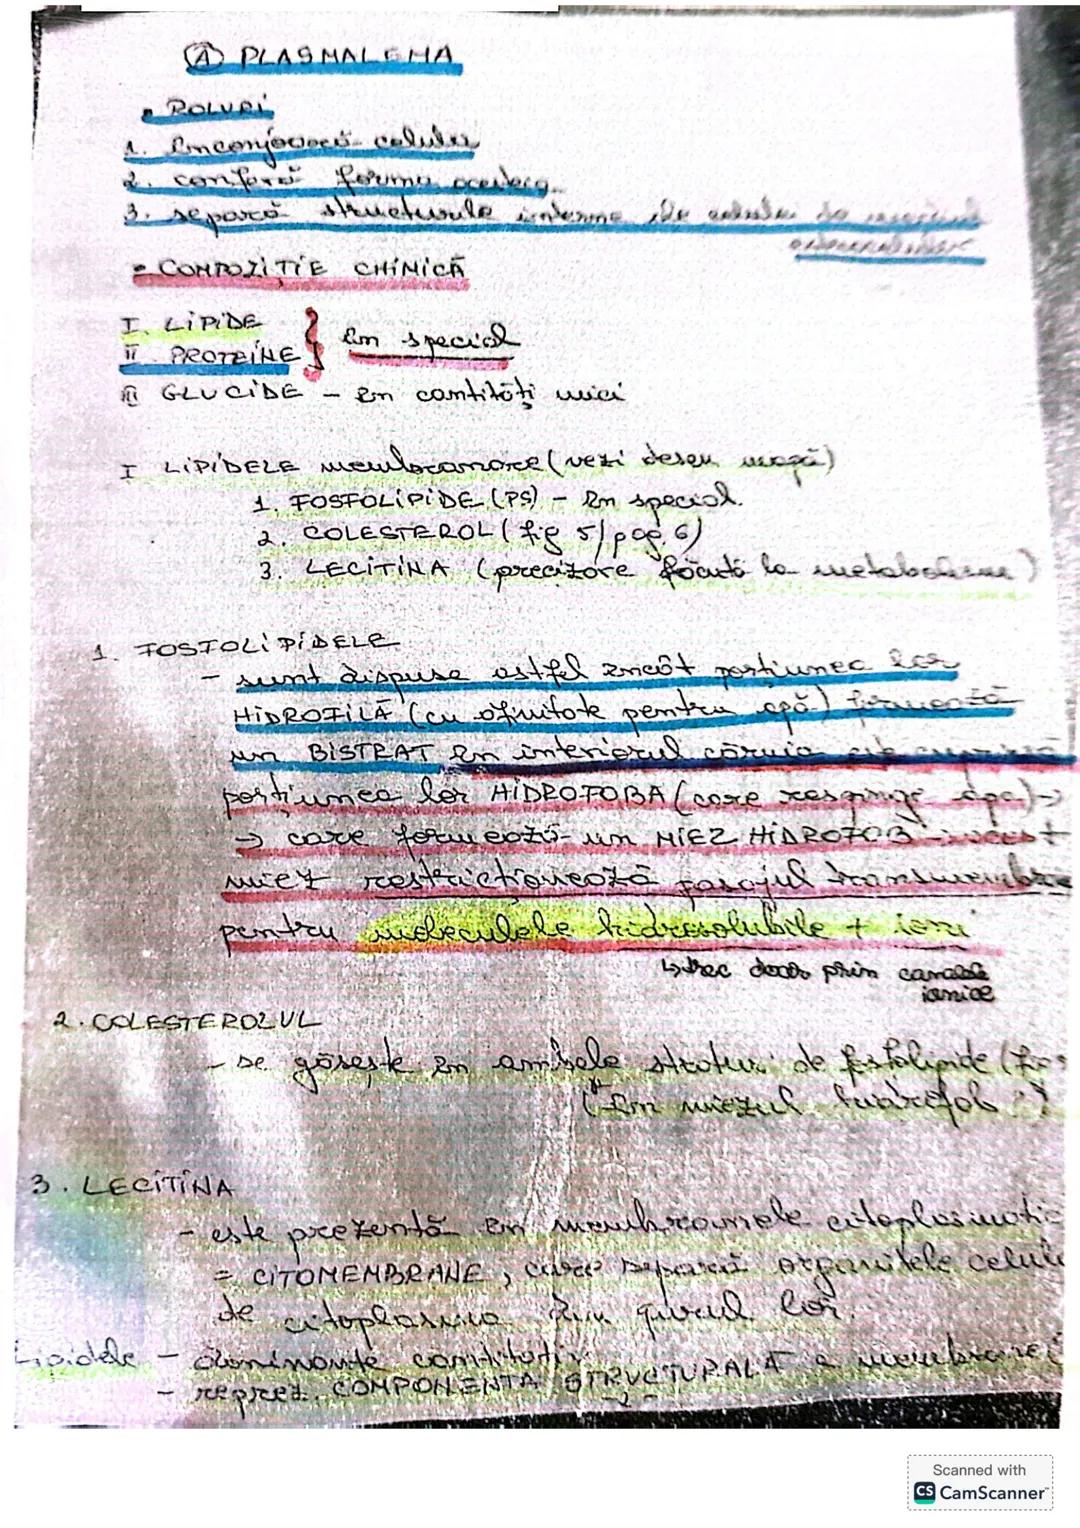 Ⓐ PLASMALEMA
• ROLURI
1. Înconjoară celula
2. conferă forma acesteia
3. separă structurile interne ale celulei de mediul
extracelular
• COMPOZIȚIE CHIMICĂ
I. LIPIDE
În special
II. PROTEINE
III GLUCIDE - În cantități mici
I LIPIDELE membranare (vezi desen mapă)
1. FOSFOLIPIDE (PS) - În special
2. COLESTEROL (fig 5/pag. 6)
3. LECITINA (precizare făcută la metabolism)
1. FOSFOLIPIDELE
- sunt dispuse astfel încât porțiunea lor
HIDROFILĂ (cu afinitate pentru apă) formează
un BISTRAT în interiorul căruia este cuprinsă
porțiunea lor HIDROFOBA (care respinge apa) →
→ care formează un MIEZ HIDROFOB - acest
miez restricționează pasajul transmembra
pentru moleculele hidrosolubile + ioni
↳ trec doar prin canale
ionice
2. COLESTEROLUL
- se găsește în ambele straturi de fosfolipide
(În miezul hidrofob!)
3. LECITINA
- este prezentă în membranele citoplasmatic
= CITOMEMBRANE, care separă organitele celul
de citoplasma din jurul lor.
Lipidele - dominante cantitativ
- reprez. COMPONENTA STRUCTURALĂ a membranei
Scanned with
CS CamScanner